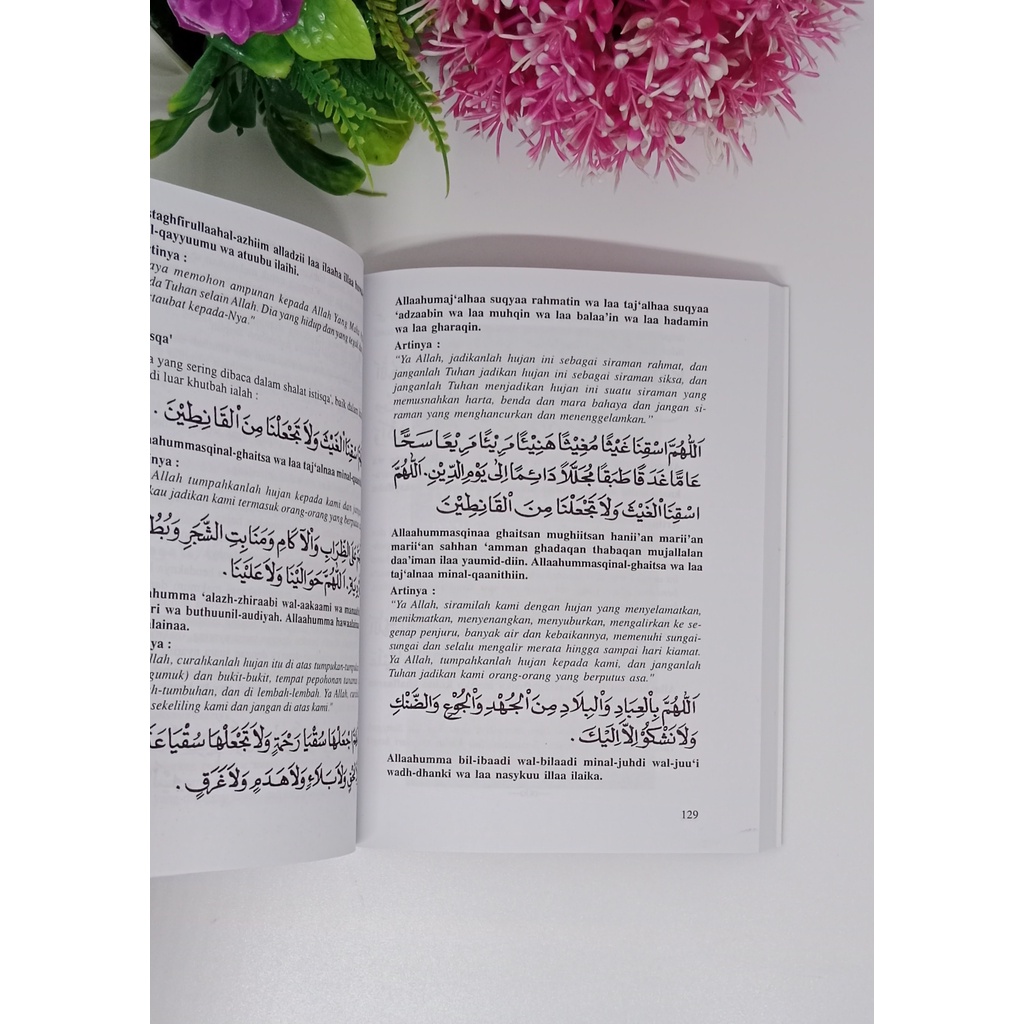 staghfirullaahal-azhiim alladzii laa ilaaha illaa
l-qayyuumu wa atuubu ilaihi.
rtinya :
aya memohon ampunan kepada Allah Yang Maha
da Tuhan selain Allah. Dia yang hidup dan yang
rtaubat kepada-Nya."
sqa'
a yang sering dibaca dalam shalat istisqa', baik dalam
di luar khutbah ialah :
اسْقِنَا الْغَيْثَ وَلَا تَجْعَلْنَا مِنَ الْقَانِطِيْنَ .
aahummasqinal-ghaitsa wa laa taj'alnaa minal-qaan
nya :
Allah tumpahkanlah hujan kepada kami dan jang
kau jadikan kami termasuk orang-orang yang berputus
عَلَى الظِّرَابِ وَالْآكَامِ وَمَنَابِتِ الشَّجَرِ وَبُطُ
اَللّٰهُمَّ حَوَالَيْنَا وَلَا عَلَيْنَا .
ahumma 'alazh-zhiraabi wal-aakaami wa manaabi
ri wa buthuunil-audiyah. Allaahumma hawaalai
lainaa.
ya :
llah, curahkanlah hujan itu di atas tumpukan-tumpuk
gumuk) dan bukit-bukit, tempat pepohonan tanama
h-tumbuhan, dan di lembah-lembah. Ya Allah, cura
sekeliling kami dan jangan di atas kami."
اجْعَلْهَا سُقْيَا رَحْمَةٍ وَلَا تَجْعَلْهَا سُقْيَا عَذَ
وَلَا بَلَاءٍ وَلَا هَدَمٍ وَلَا غَرَقٍ .
Allaahumaj'alhaa suqyaa rahmatin wa laa taj'alhaa suqyaa
'adzaabin wa laa muhqin wa laa balaa'in wa laa hadamin
wa laa gharaqin.
Artinya :
"Ya Allah, jadikanlah hujan ini sebagai siraman rahmat, dan
janganlah Tuhan jadikan hujan ini sebagai siraman siksa, dan
janganlah Tuhan menjadikan hujan ini suatu siraman yang
memusnahkan harta, benda dan mara bahaya dan jangan si-
raman yang menghancurkan dan menenggelamkan."
اَللّٰهُمَّ اسْقِنَا غَيْثًا مُغِيْثًا هَنِيْئًا مَرِيْئًا مَرِيْعًا سَحًّا
عَامًّا غَدَقًا طَبَقًا مُجَلَّلًا دَائِمًا اِلٰى يَوْمِ الدِّيْنِ. اَللّٰهُمَّ
اسْقِنَا الْغَيْثَ وَلَا تَجْعَلْنَا مِنَ الْقَانِطِيْنَ
Allaahummasqinaa ghaitsan mughiitsan hanii'an marii'an
marii'an sahhan 'amman ghadaqan thabaqan mujallalan
daa'iman ilaa yaumid-diin. Allaahummasqinal-ghaitsa wa laa
taj'alnaa minal-qaanithiin.
Artinya :
"Ya Allah, siramilah kami dengan hujan yang menyelamatkan,
menikmatkan, menyenangkan, menyuburkan, mengalirkan ke se-
genap penjuru, banyak air dan kebaikannya, memenuhi sungai-
sungai dan selalu mengalir merata hingga sampai hari kiamat.
Ya Allah, tumpahkanlah hujan kepada kami, dan janganlah
Tuhan jadikan kami orang-orang yang berputus asa."
اَللّٰهُمَّ بِالْعِبَادِ وَالْبِلَادِ مِنَ الْجُهْدِ وَالْجُوْعِ وَالضَّنْكِ
وَلَا نَشْكُوْ اِلَّا اِلَيْكَ .
Allaahumma bil-ibaadi wal-bilaadi minal-juhdi wal-juu'i
wadh-dhanki wa laa nasykuu illaa ilaika.
129